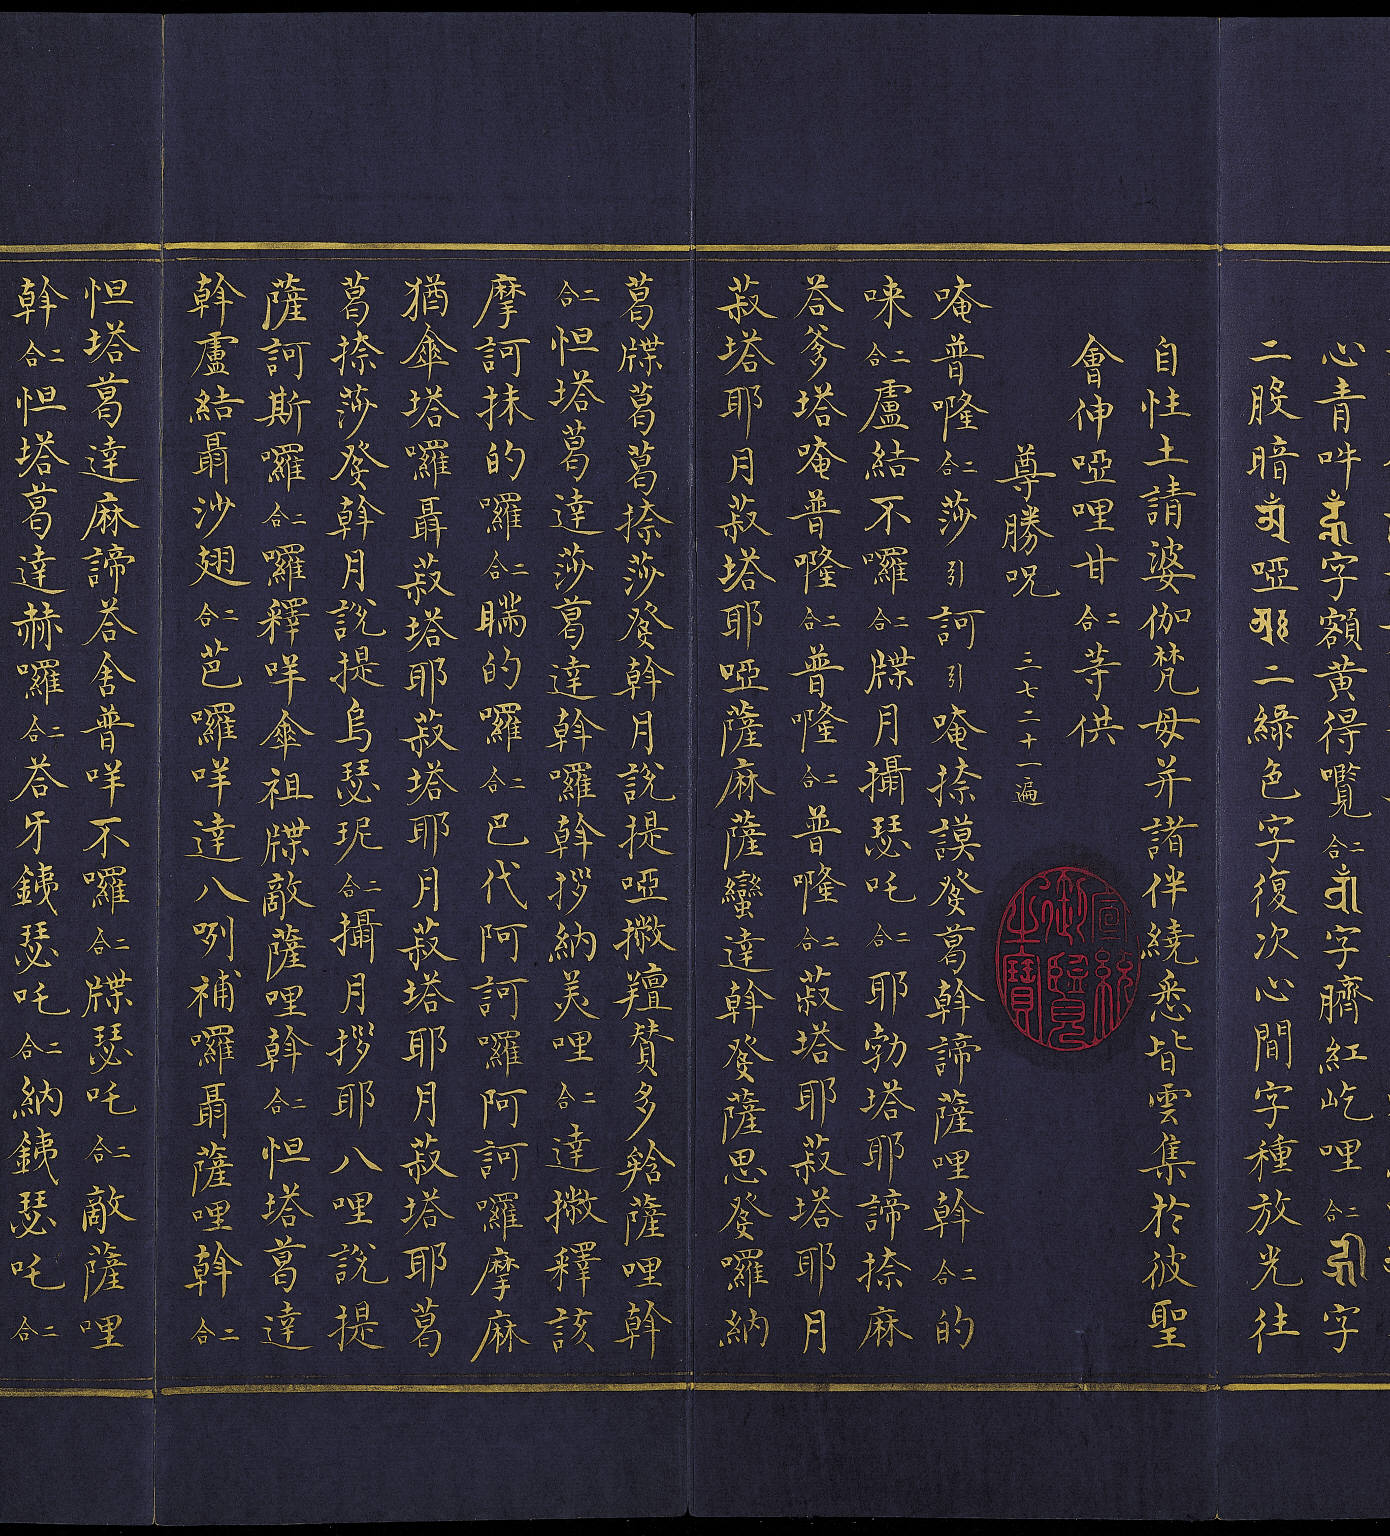 心青吽字額黄得囕二合字臍紅屹哩二合字
二股暗啞二綠色字復次心間字種放光往
自性土請婆伽梵母并諸伴繞悉皆雲集於彼聖
會伸啞哩甘二合等供
尊勝呪 三七二十一遍
唵普㘕二合莎引訶引唵捺謨發葛斡諦薩哩斡二合的
唻二合盧結不囉二合牒月攝瑟吒二合耶勃塔耶諦捺麻
荅爹塔唵普㘕二合普㘕二合普㘕二合菽塔耶菽塔耶月
菽塔耶月菽塔耶啞薩麻薩蠻達斡發薩思發囉納
葛牒葛葛捺莎發斡月說提啞撇羶賛多𦪨薩哩斡
二合怛塔葛達莎葛達斡囉斡拶納美哩二合達撇釋該
摩訶抹的囉二合瞞的囉二合巴代阿訶囉阿訶囉摩麻
猶傘塔囉聶菽塔耶菽塔耶月菽塔耶月菽塔耶葛
葛捺莎發斡月說提烏瑟玭二合攝月拶耶八哩說提
薩訶斯囉二合囉釋咩傘祖牒敵薩哩斡二合怛塔葛達
斡盧結聶沙翅二合芭囉咩達八咧補囉聶薩哩斡二合
怛塔葛達麻諦荅舍普咩不囉二合牒瑟吒二合敵薩哩
斡二合怛塔葛達赫囉二合荅牙銕瑟吒二合納銕瑟吒二合
宣統御覽之寶